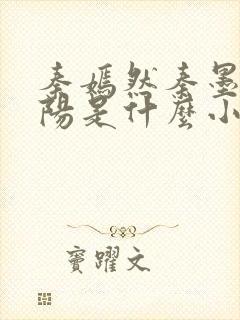 秦嫣然秦墨
陽是什麼小
竇躍文